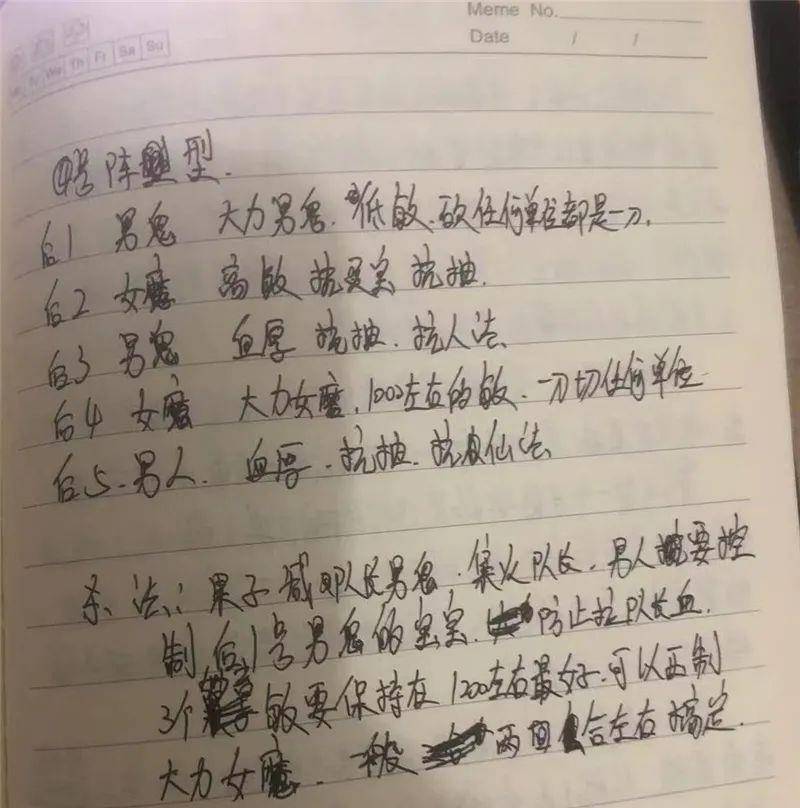 Meme No.
Date / /
We Th Fr Sa Su
④号阵型.
后1 男鬼 大力男鬼. 低敏. 砍任何单位都是一刀.
后2 女魔 高敏 抗灵宝 抗抽.
后3 男鬼 血厚 抗抽. 抗人法
后4 女魔 大力女魔. 1000左右的敏. 一刀切任何单位
后5. 男人. 血厚. 抗抽. 抗仙法
杀法: 果子减 队长男鬼. 集火队长. 男人要控
制后1号男鬼的宝宝. 防止拉队长血.
3个 敏要保持在1200左右最好. 可以压制
大力女魔. 一般 两回合左右搞定.